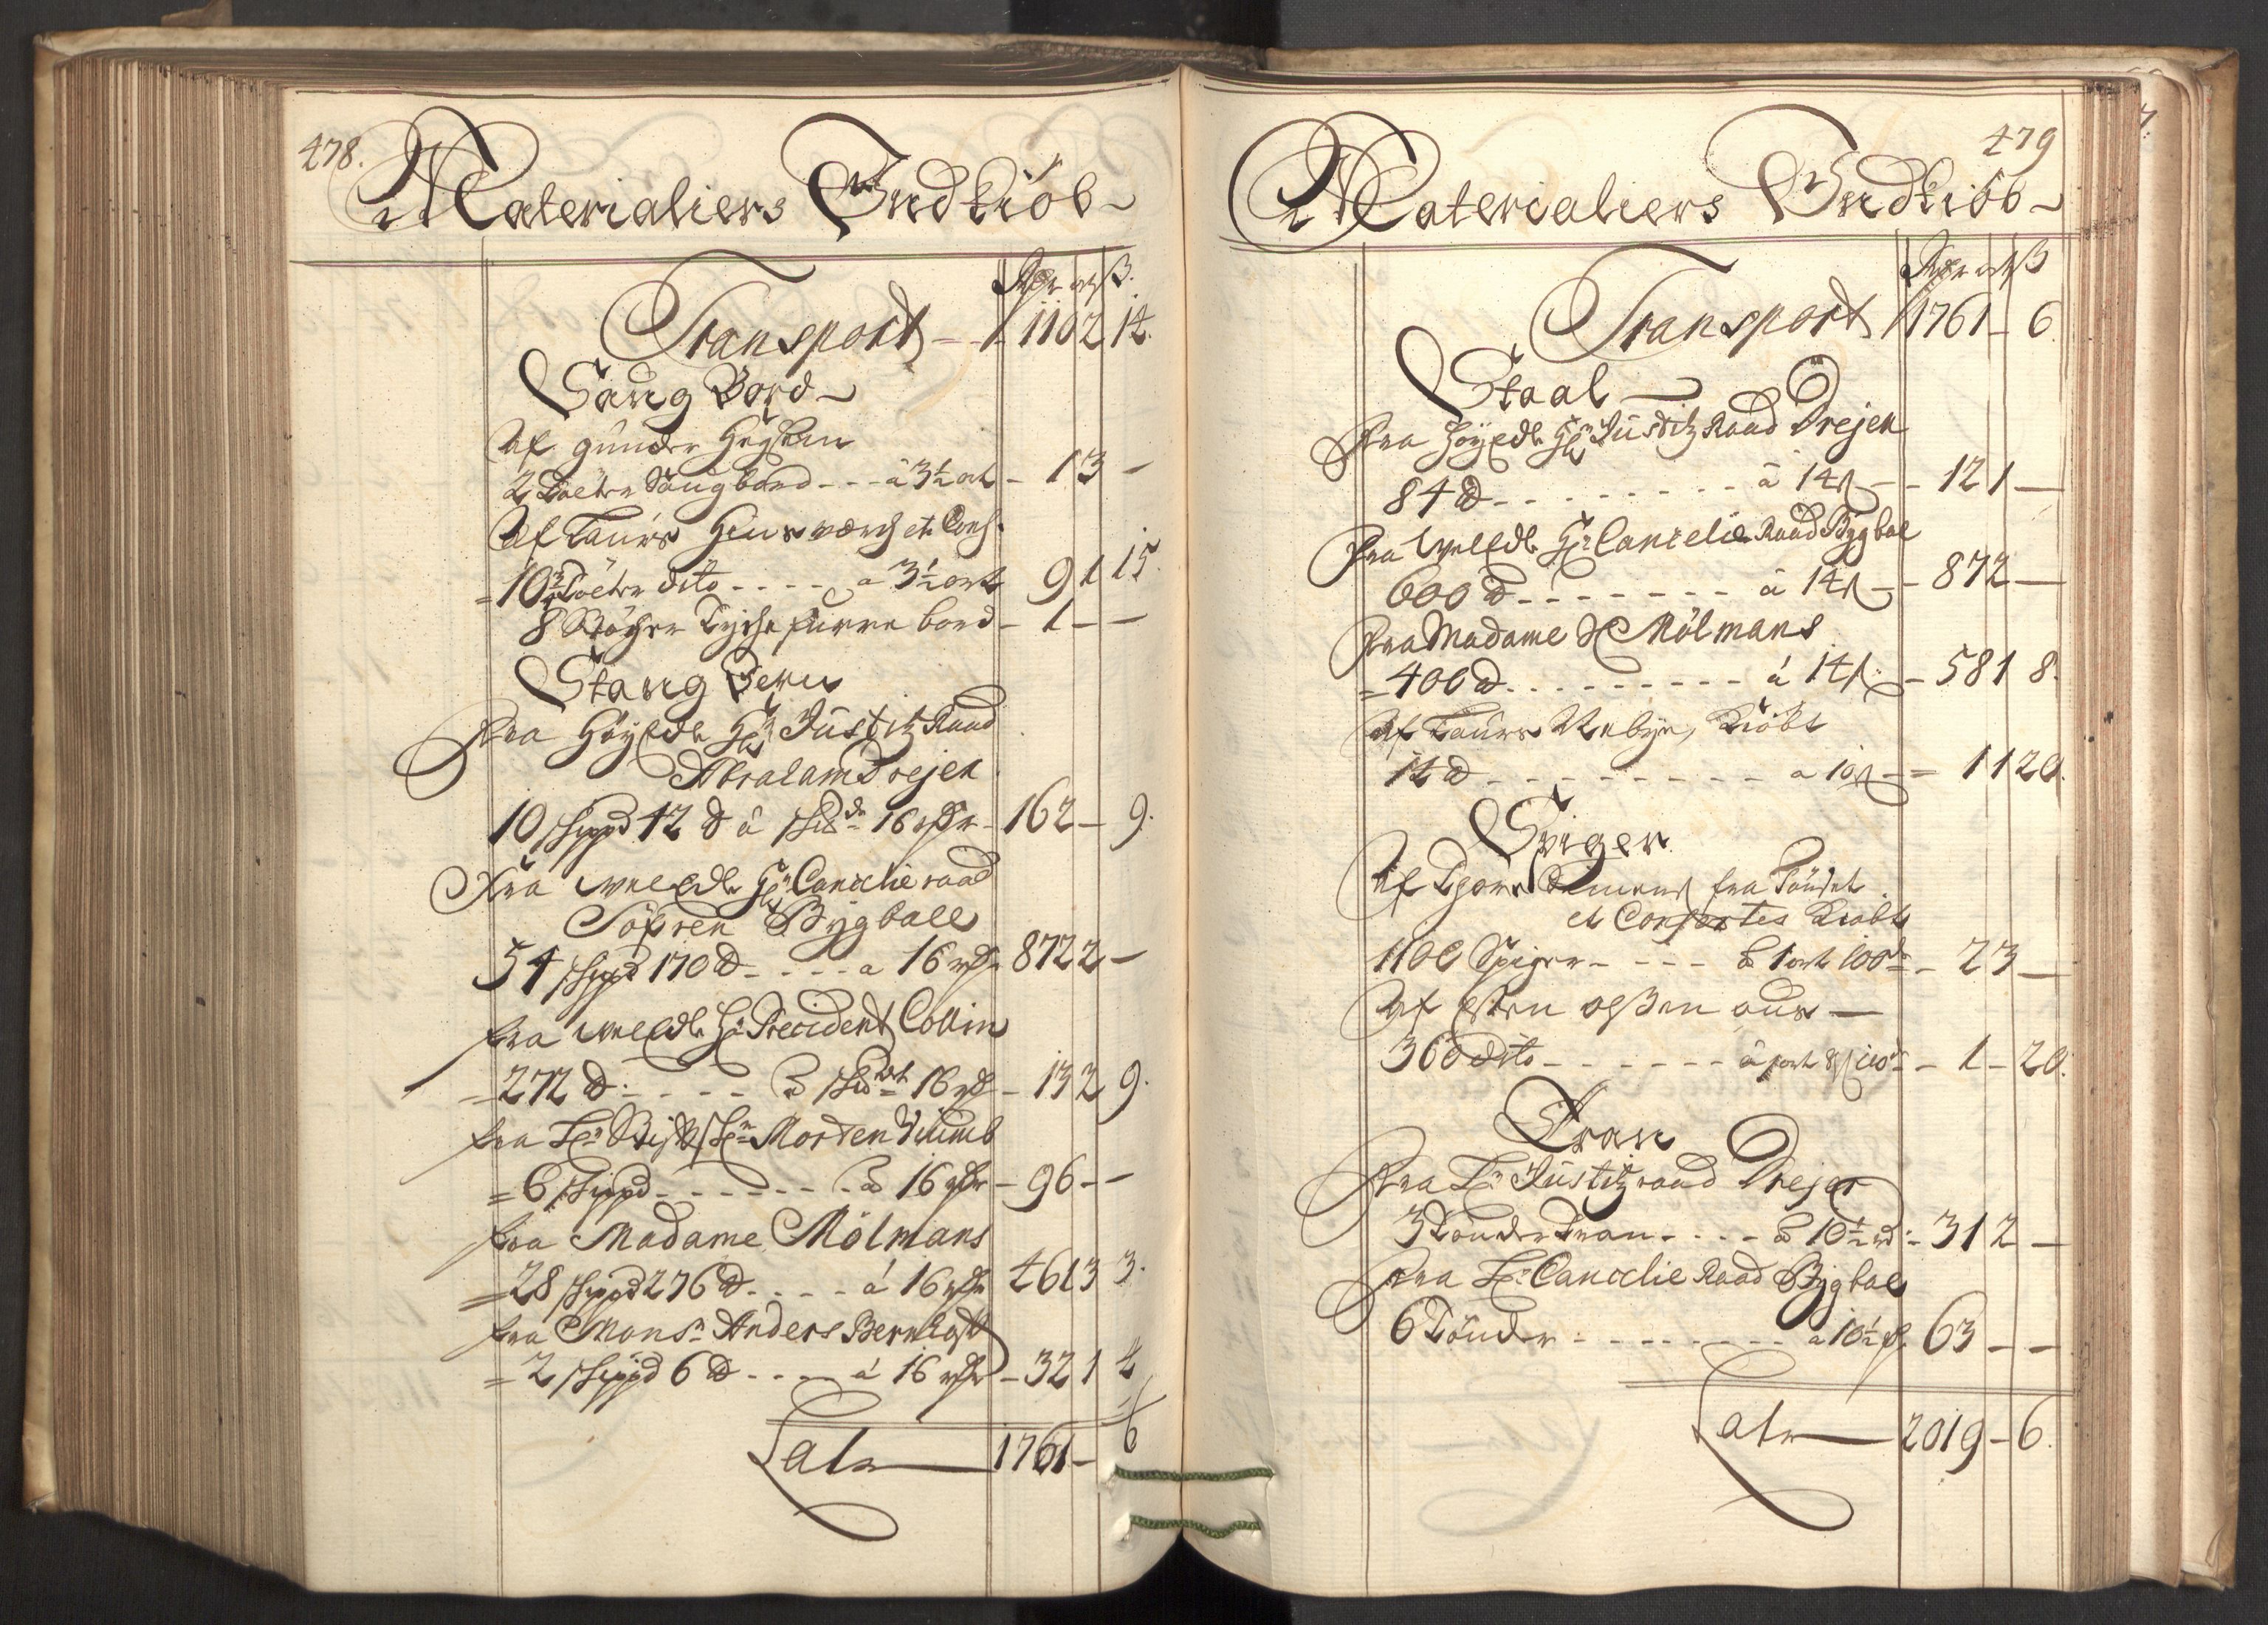 478.
Materialiers Indkiöb
Rdr ort ß.
Transport 1102 1 4.
Saug Bord
Af Gunder
2 Tolter Saugbord - - - à 3½ ort - 1 3 -
Af Laurs et Cons.
10¾ Tolter dito - - - - a 3½ ort 9 1 15.
8 furre bord - 1 - -
Stang Jern
Fra Höyædle Hr Justitz Raad
Abraham Drejer
10 skippd 12 ℔ à skpd 16 rdr - 162 - 9.
Fra Velædle Hr Cancelie raad
Söfren Bygball
54 skippd 170 ℔ - - - - a 16 rdr 872 2 -
fra Velædle Hr Precident Collin
272 ℔ - - - - à skpd 16 rdr - 13 2 9.
fra Sr Morten
6 skippd - - - - - - à 16 rdr - 96 - -
fra Madame Mölmans
28 skippd 276 ℔ - - - - á 16 rdr 461 3 3.
fra Monsr Anders
2 skippd 6 ℔ - - - - á 16 rdr - 32 1 4
Latr 1761 - 6
479
Materialiers Indkiöb
Rdr ort ß
Transport 1761 - 6.
Staal
Fra Höyædle Hr Justitz Raad Drejer
84 ℔ - - - - - - - - à 14 ß - 12 1 -
Fra Velædle Hr Cancelie Raad Bygbal
600 ℔ - - - - - - - à 14 ß - 87 2 -
Fra Madame Mölmans
400 ℔ - - - - - - - - - á 14 ß - 58 1 8.
Af Laurs Kiöbt
14 ℔ - - - - - - - - - a 10 ß - 1 1 20.
Spiger
Af fra
et Consortes Kiöbt
1100 Spiger - - - - à 1 ort 100de - 2 3 -
Af Olßen
360 dito - - - - - - à 1 ort 8 ß 100 - 1 - 20.
Tran
Fra Hr Justitz raad Drejer
3 Tönder Tran - - - - à 10½ rd - 31 2 -
Fra Hr Cancelie Raad Bygbal
6 Tönder - - - - - - - - a 10½ rd 63 - -
Latr 2019 - 6.